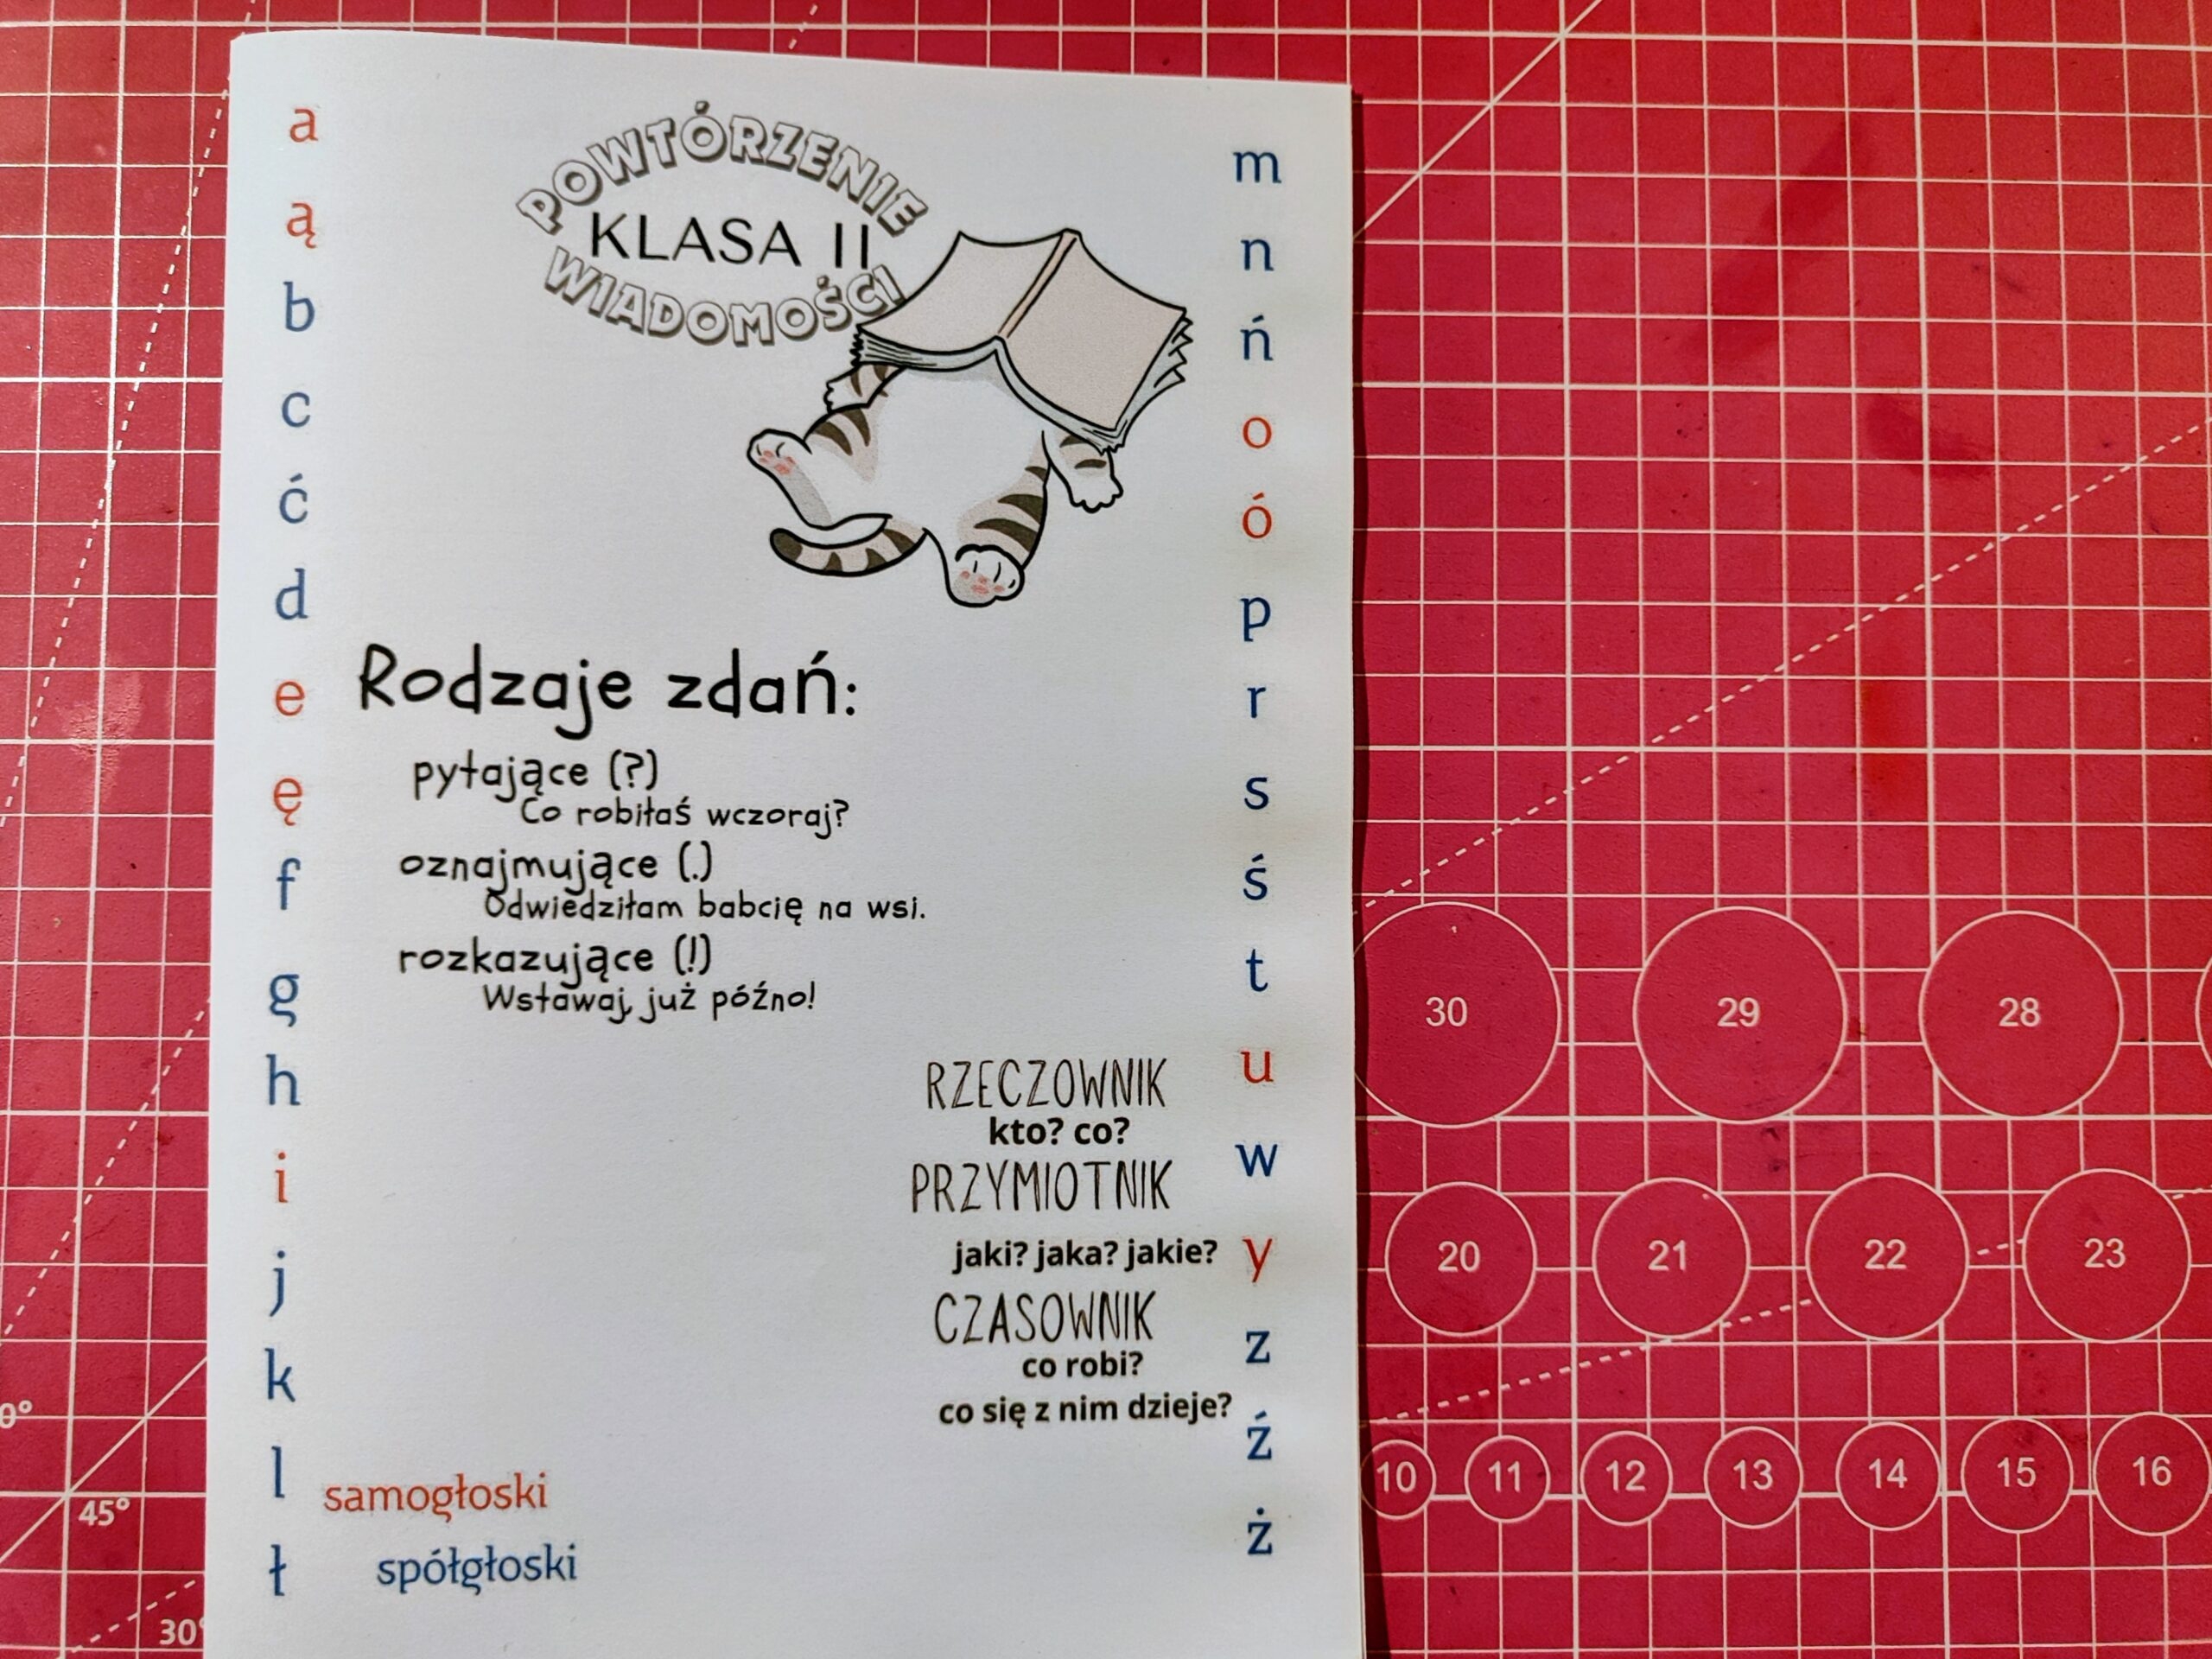 POWTÓRZENIE
KLASA II
WIADOMOŚCI
a
ą
b
c
ć
d
e
ę
f
g
h
i
j
k
l
ł
Rodzaje zdań:
pytające (?)
Co robiłaś wczoraj?
oznajmujące (.)
Odwiedziłam babcię na wsi.
rozkazujące (!)
Wstawaj, już późno!
RZECZOWNIK
kto? co?
PRZYMIOTNIK
jaki? jaka? jakie?
CZASOWNIK
co robi?
co się z nim dzieje?
samogłoski
spółgłoski
m
n
ń
o
ó
p
r
s
ś
t
u
w
y
z
ź
ż
30 29 28
20 21 22 23
10 11 12 13 14 15 16
0°
45°
30°